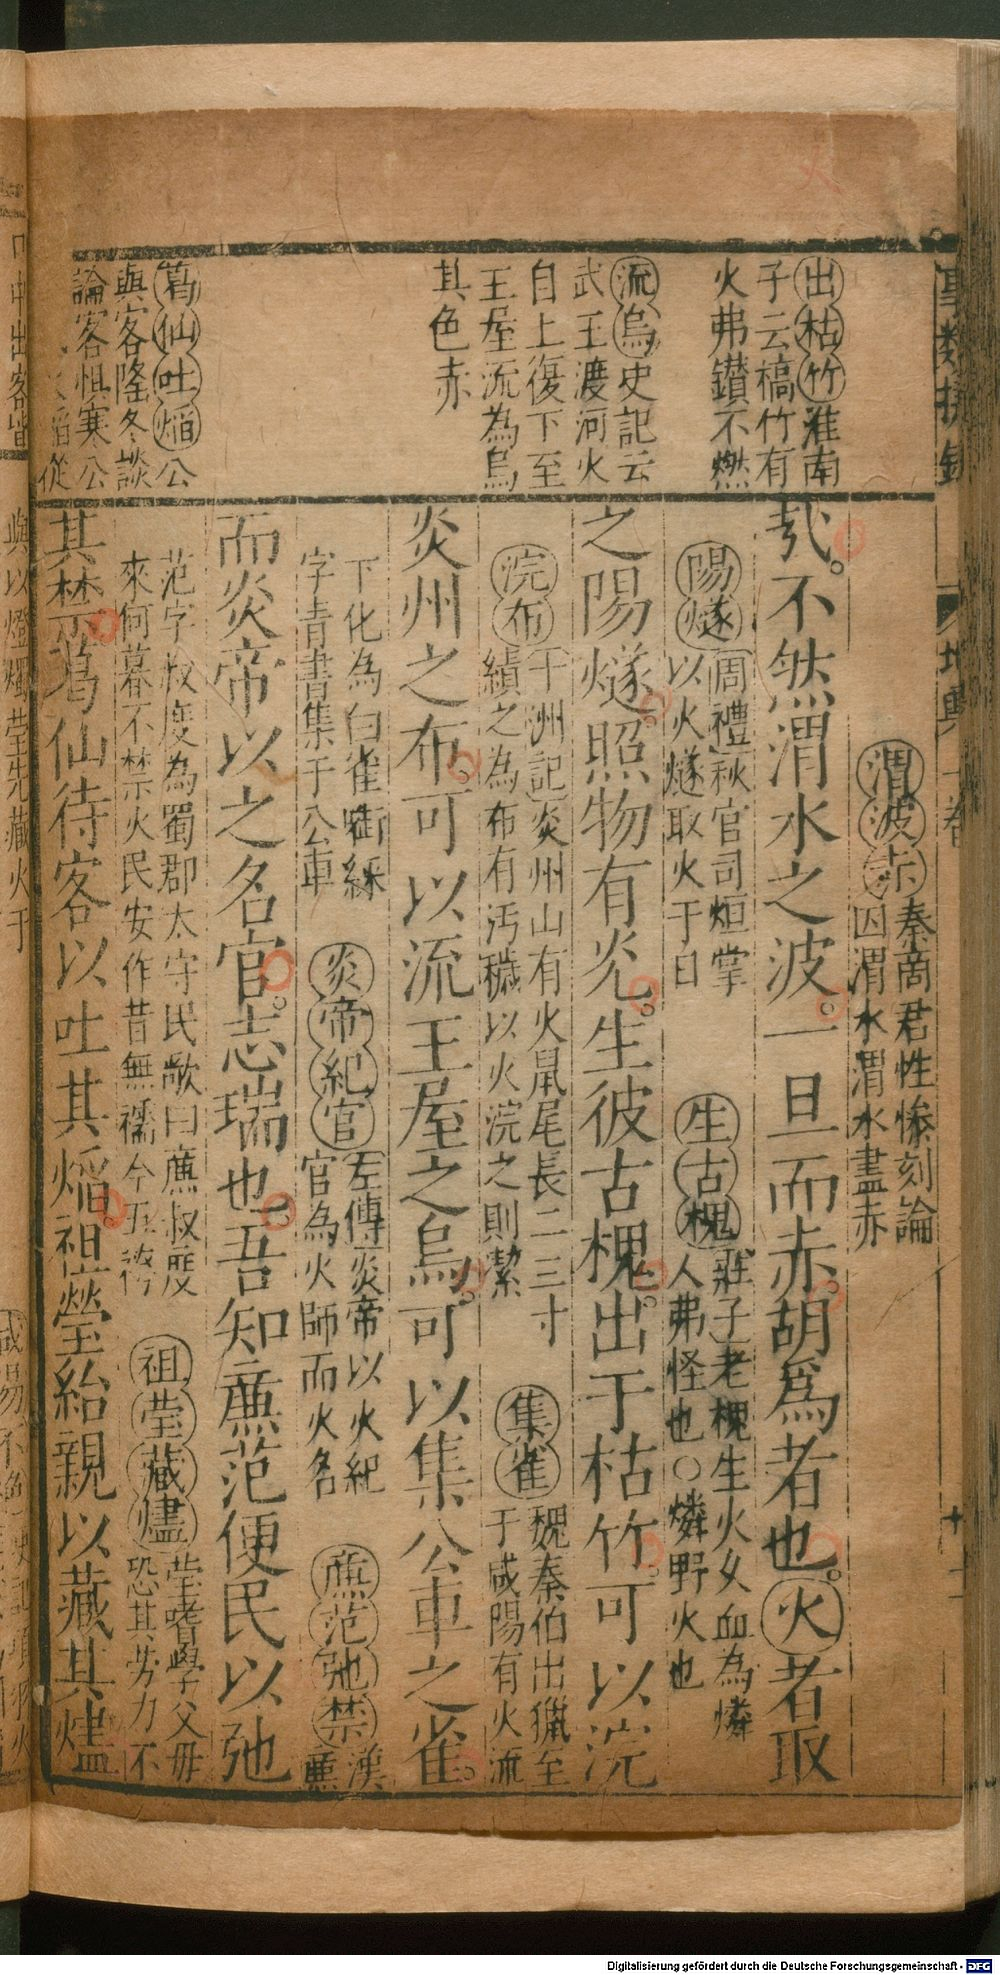 火
出枯竹淮南
子云槁竹有
火弗鑚不燃
流烏史記云
武王渡河火
自上復下至
王屋流為烏
其色赤
葛仙吐焰公
與客隆冬談
論客惧寒公
焰從
事類捷錄
地輿 一卷
渭波赤秦商君性慘刻論
囚渭水渭水盡赤
哉。不然渭水之波。一旦而赤。胡爲者也。火者取
陽燧周禮秋官司烜掌
以火燧取火于日
生古槐莊子老槐生火女血為燐
人弗怪也○燐野火也
之陽燧。照物有光。生彼古槐。出于枯竹。可以浣
浣布十洲記炎州山有火鼠尾長二三寸
績之為布有汚穢以火浣之則潔
集雀魏秦伯出獵至
于咸陽有火流
炎州之布。可以流王屋之烏。可以集公車之雀。
下化為白雀啣綠
字青書集于公車
炎帝紀官左傳炎帝以火紀
官為火師而火名
廉范弛禁漢
廉
而炎帝以之名官。志瑞也。吾知廉范便民以弛
范字叔度為蜀郡太守民歌曰廉叔度
來何暮不禁火民安作昔無襦今五袴
祖瑩藏燼瑩嗜學父母
恐其劳力不
其禁。葛仙待客以吐其焰。祖瑩紿親以藏其燼
口中出客皆
與以燈燭瑩先藏火于
Digitalisierung gefördert durch die Deutsche Forschungsgemeinschaft - DFG